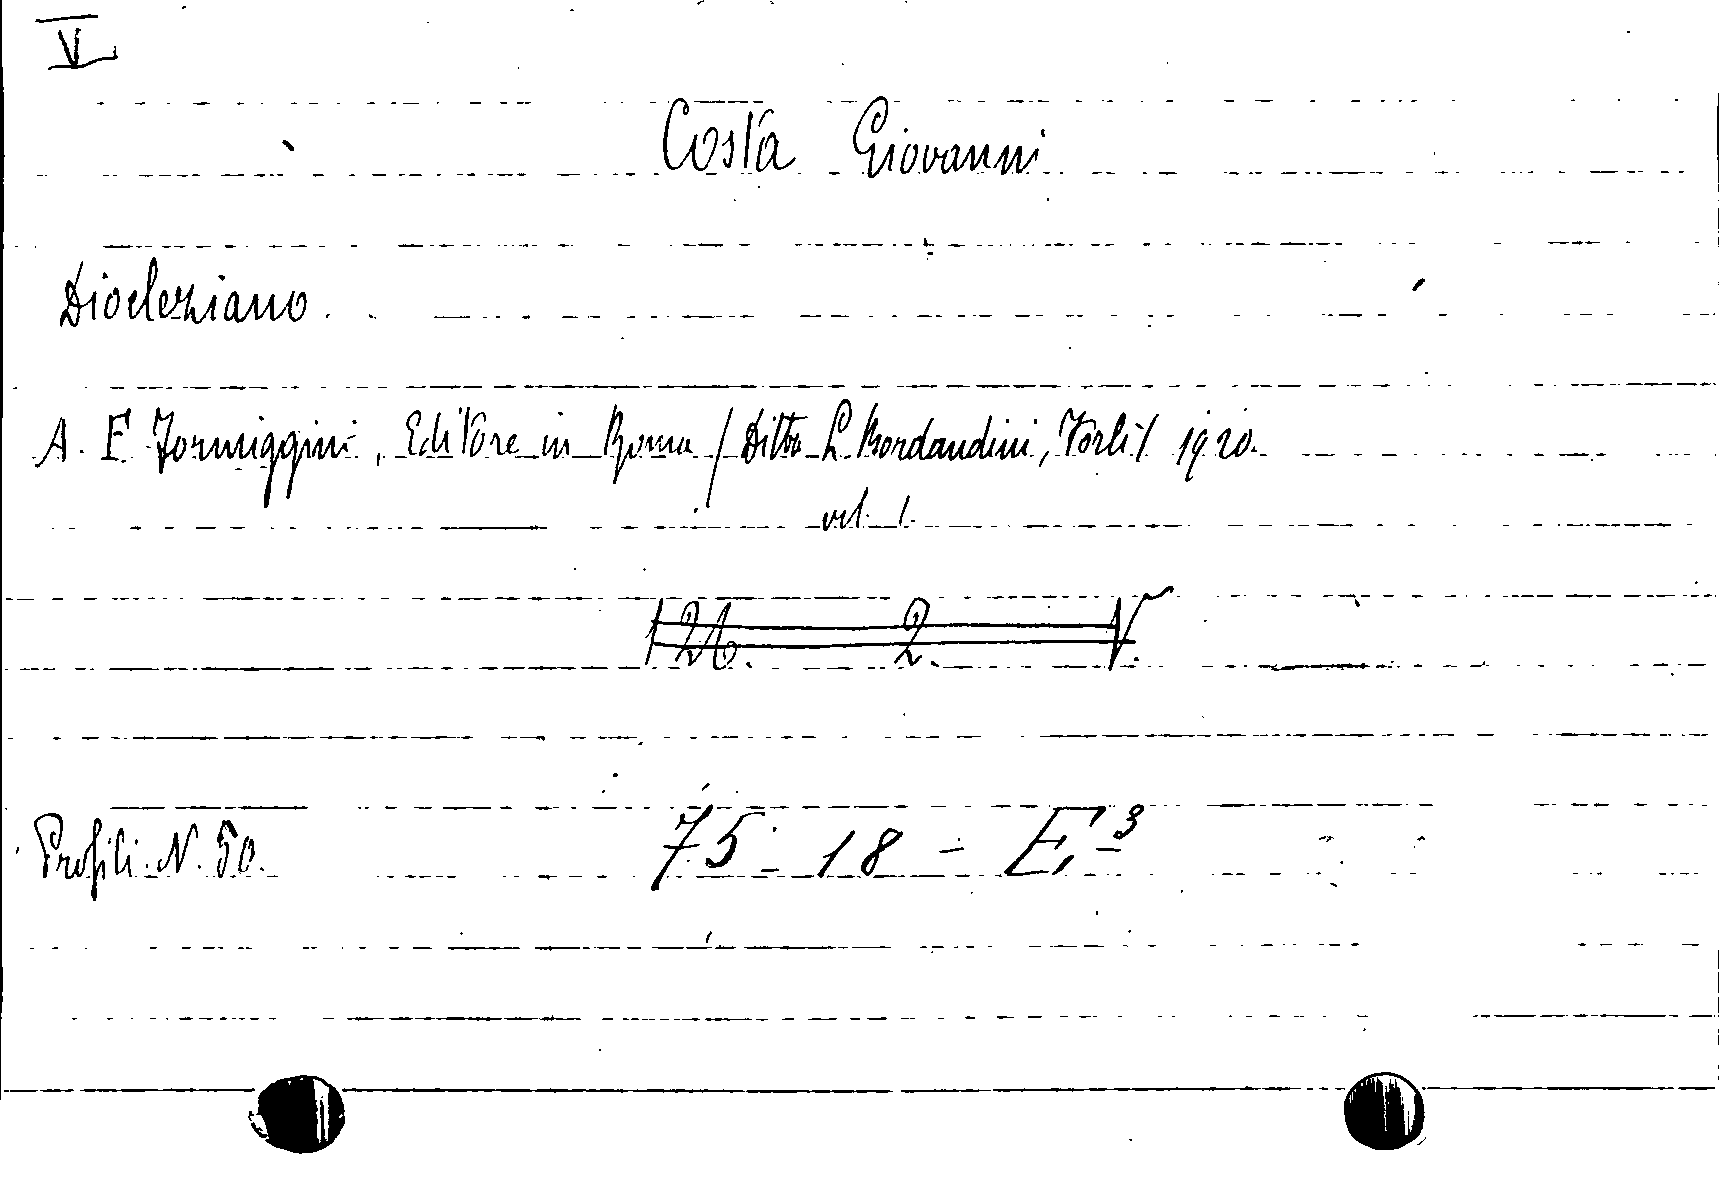 V
Costa Giovanni
Diocleziano.
A. F. Formiggini, Editore in Roma / Ditta L. Bordandini, Forlì / 1920.
vol. 1.
126. 2. V.
Profili. N. 50. 75 - 18 - E, 3